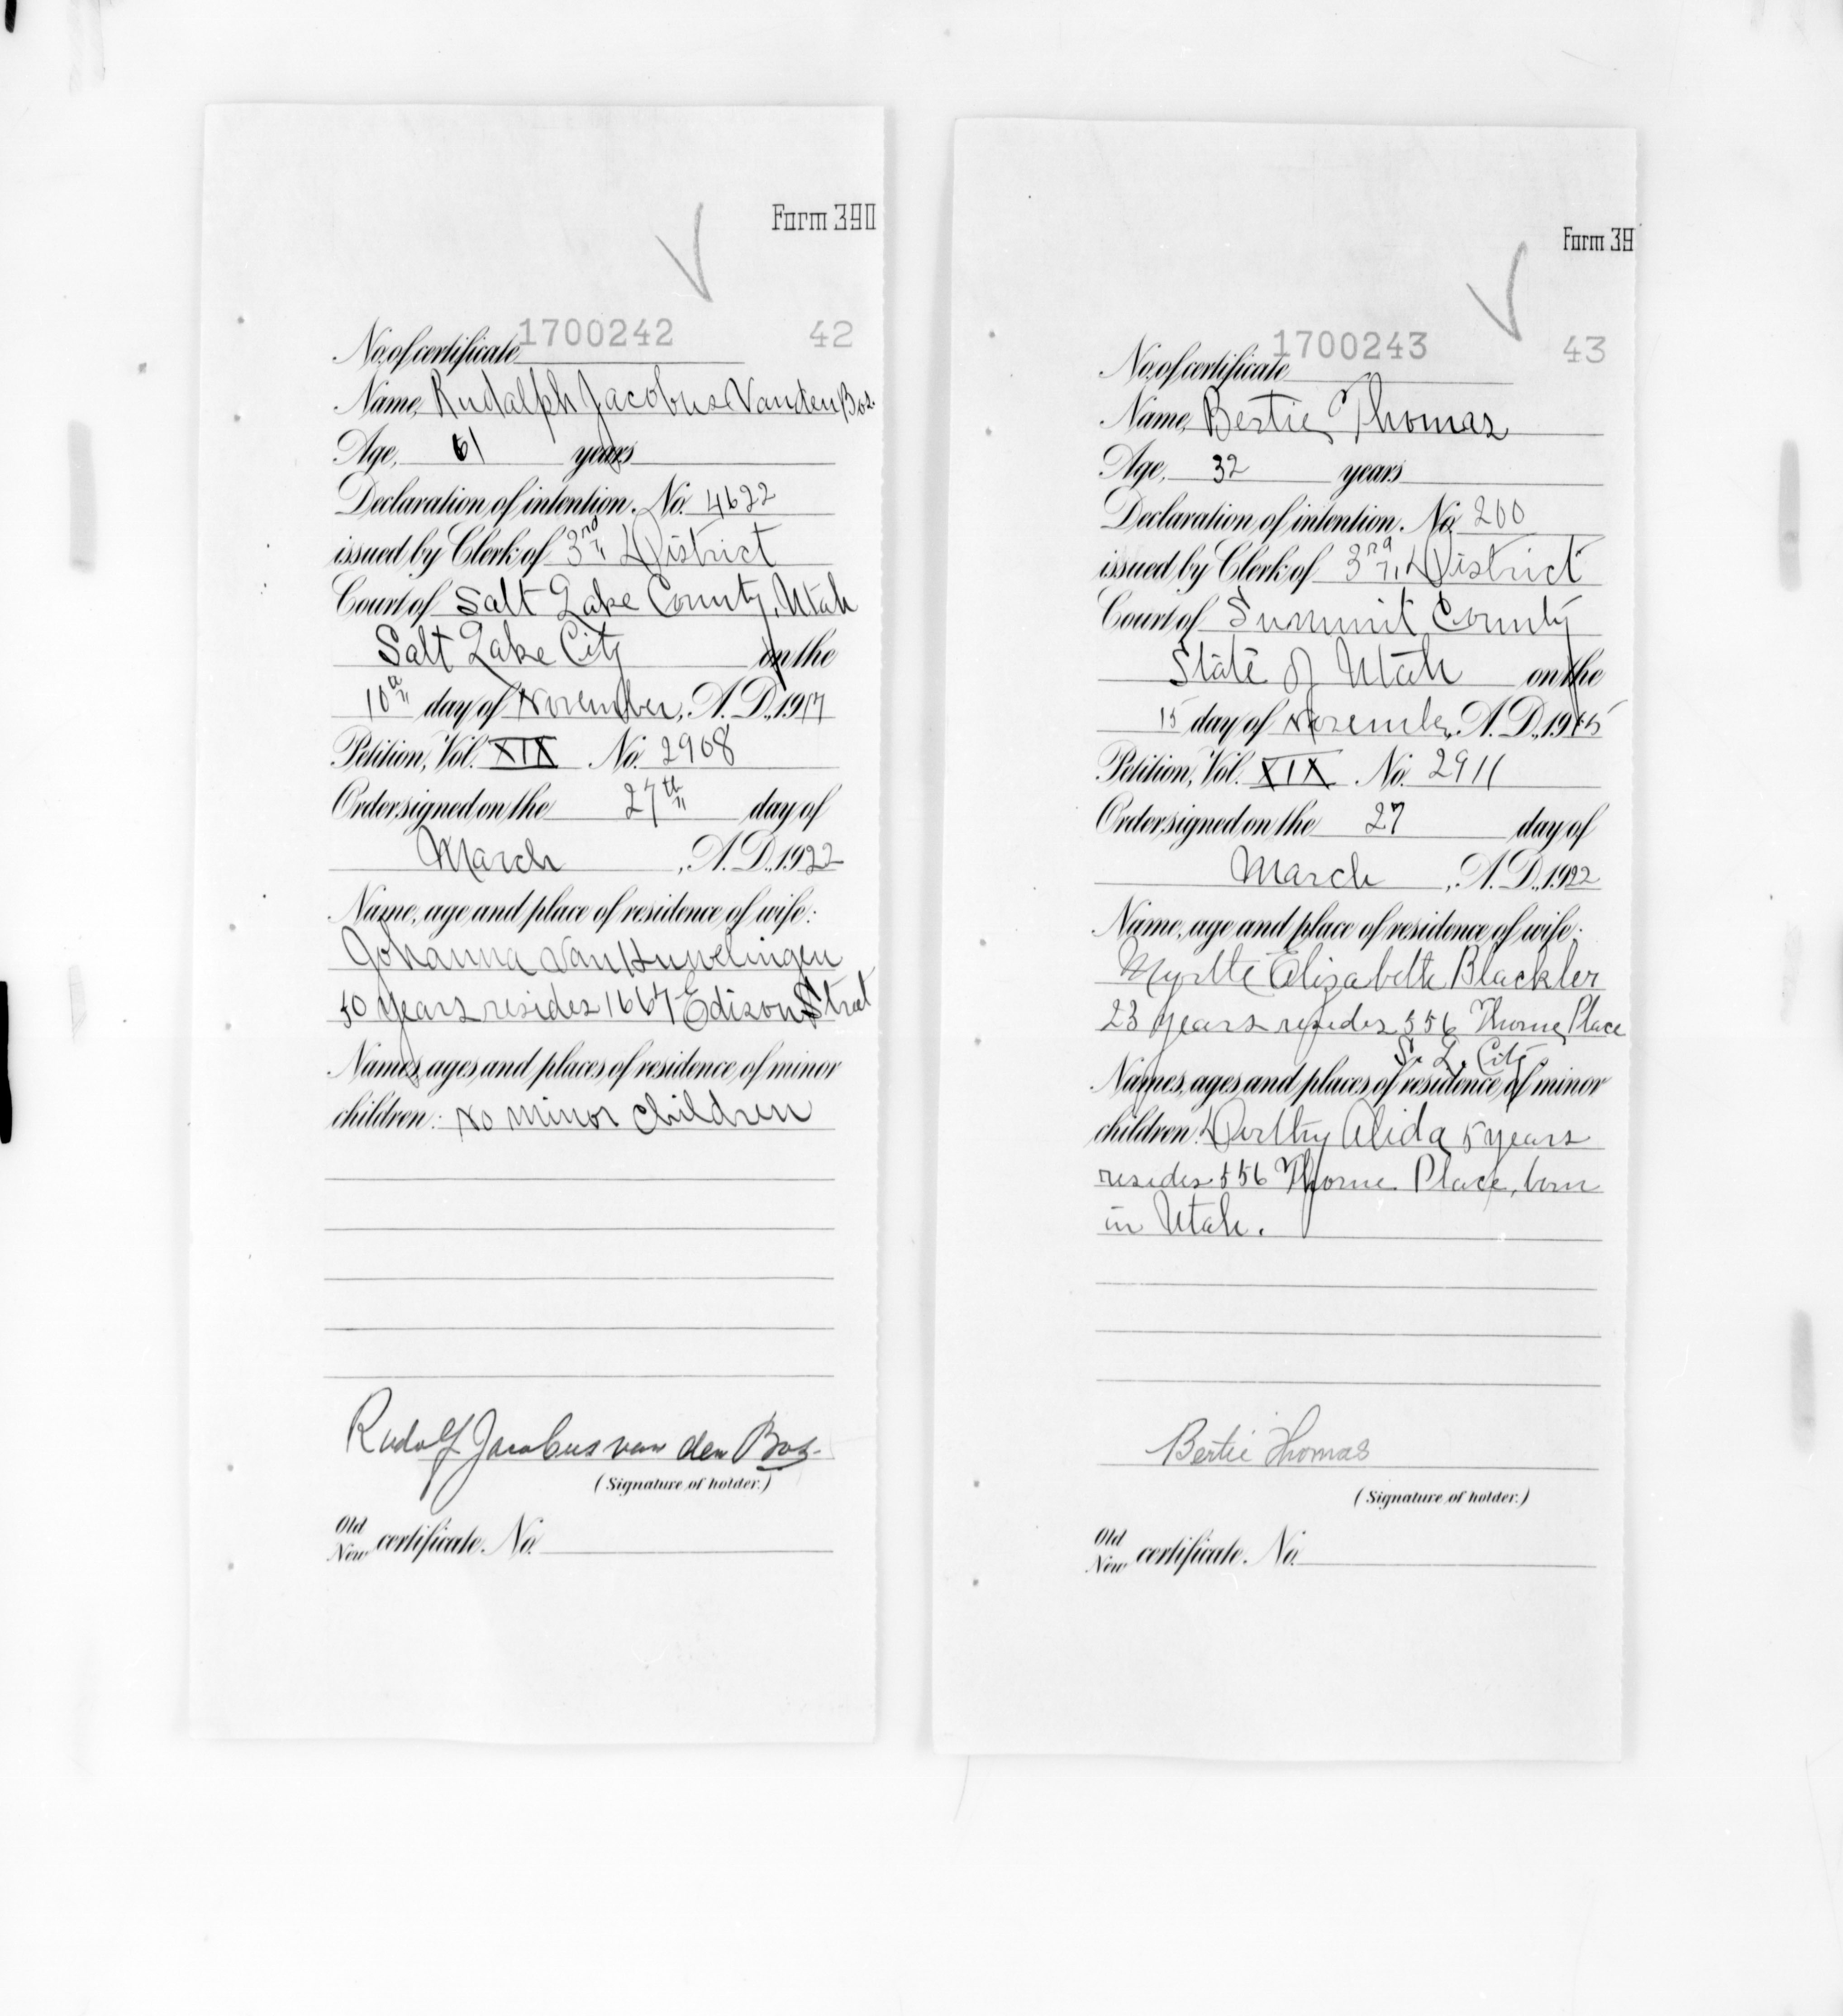 Form 390
1700242 42
No. of certificate
Name, Rudalph Jacobus Vanden Bos.
Age, 61 years
Declaration of intention. No. 4622
issued by Clerk of 3rd District
Court of Salt Lake County, Utah
Salt Lake City on the
10th day of November, A. D., 1917
Petition, Vol. XIX No. 2908
Order signed on the 27th day of
March, A. D., 1922
Name, age and place of residence of wife:
Johanna Van
50 years resides 1667 Edison Street
Names, ages and places of residence of minor
children: No minor children
Rudolf Jacobus van den Bos.
(Signature of holder.)
Old
New certificate. No.
Form 39
1700243 43
No. of certificate
Name, Bertie Thomas
Age, 32 years
Declaration of intention. No. 200
issued by Clerk of 3rd District
Court of Summit County
State of Utah on the
15 day of November, A. D., 1915
Petition, Vol. XIX No. 2911
Order signed on the 27 day of
March, A. D., 1922
Name, age and place of residence of wife:
Myrtte Elizabeth Blackler
23 years resides 556 Thorne Place
S. L. City
Names, ages and places of residence of minor
children: Dorthy Alida 5 years
resides 556 Thorne Place, born
in Utah.
Bertie Thomas
(Signature of holder.)
Old
New certificate. No.